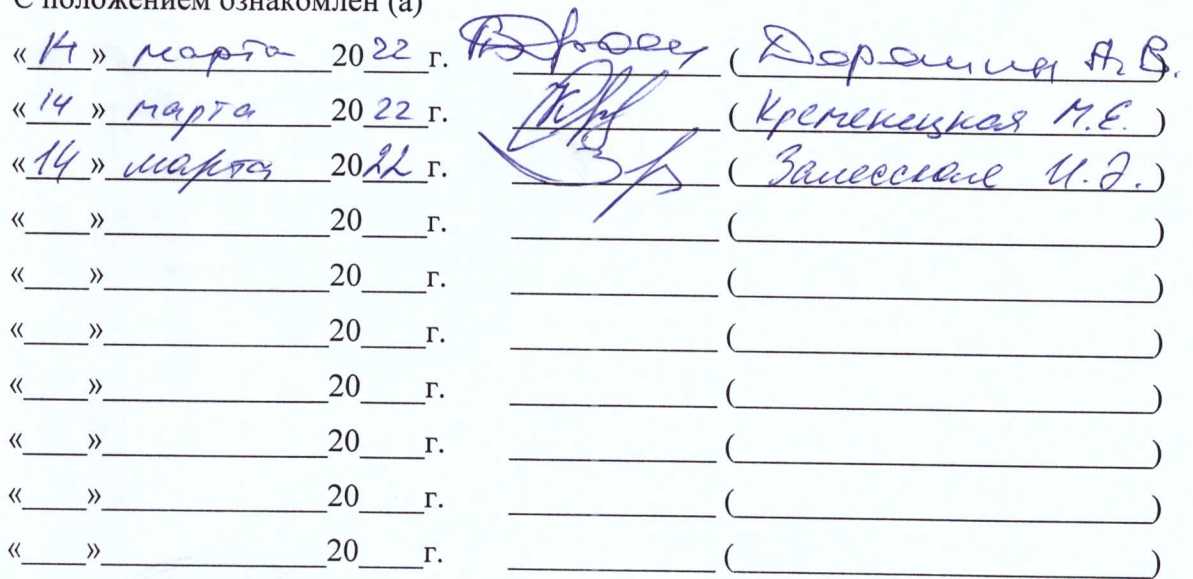 С положением ознакомлен (а)
«14» марта 2022 г. (Доронина А.В.
«14» марта 2022 г. (Кременецкая М.Е.)
«14» марта 2022 г. (Залесская И.Э.)
«____»____________20____г. ____________(____________)
«____»____________20____г. ____________(____________)
«____»____________20____г. ____________(____________)
«____»____________20____г. ____________(____________)
«____»____________20____г. ____________(____________)
«____»____________20____г. ____________(____________)
«____»____________20____г. ____________(____________)